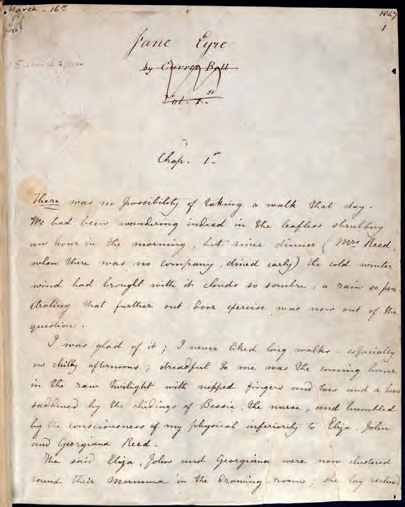 March - 16th
1847
1
Jane Eyre
by Currer Bell
Vol. 1st
Chap. 1st
There was no possibility of taking a walk that day.
We had been wandering indeed in the leafless shrubbery
an hour in the morning, but since dinner (Mrs Reed,
when there was no company, dined early) the cold winter
wind had brought with it clouds so sombre, a rain so pen
etrating that further out door exercise was now out of the
question.
I was glad of it; I never liked long walks - especially
on chilly afternoons; dreadful to me was the coming home
in the raw twilight with nipped fingers and toes and a
saddened by the chidings of Bessie, the nurse, and humbled
by the consciousness of my physical inferiority to Eliza, John
and Georgiana Reed.
The said Eliza, John and Georgiana were now clustered
round their Mamma in the drawing-room; she lay reclined